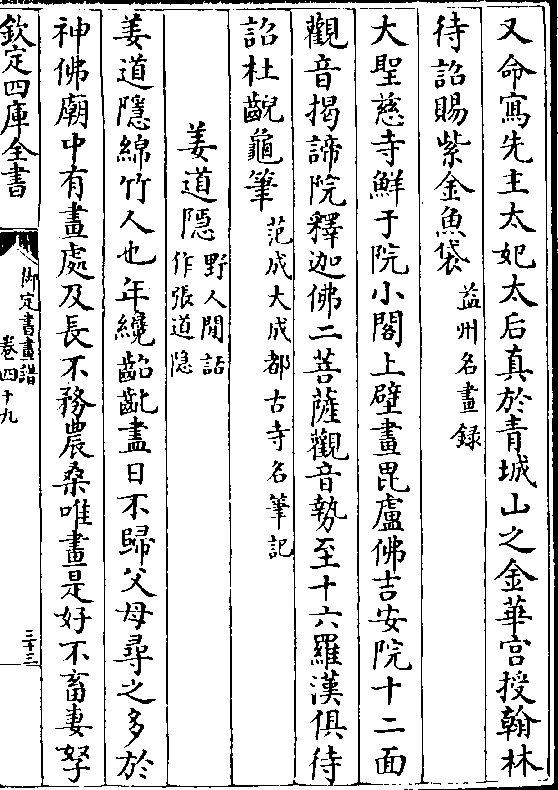 又命寫先主太妃太后真於青城山之金華宫授翰林
待詔賜紫金魚袋益州名畫録
大聖慈寺鮮于院小閣上壁畫毘盧佛吉安院十二面
觀音揭諦院釋迦佛二菩薩觀音勢至十六羅漢俱待
詔杜齯龜筆范成大成都古寺名筆記
姜道隱野人閒話作張道隱
姜道隱綿竹人也年纔齠齔盡日不歸父母尋之多於
神佛廟中有畫處及長不務農桑唯畫是好不畜妻孥
欽定四庫全書
御定書畫譜
卷四十九
三十三